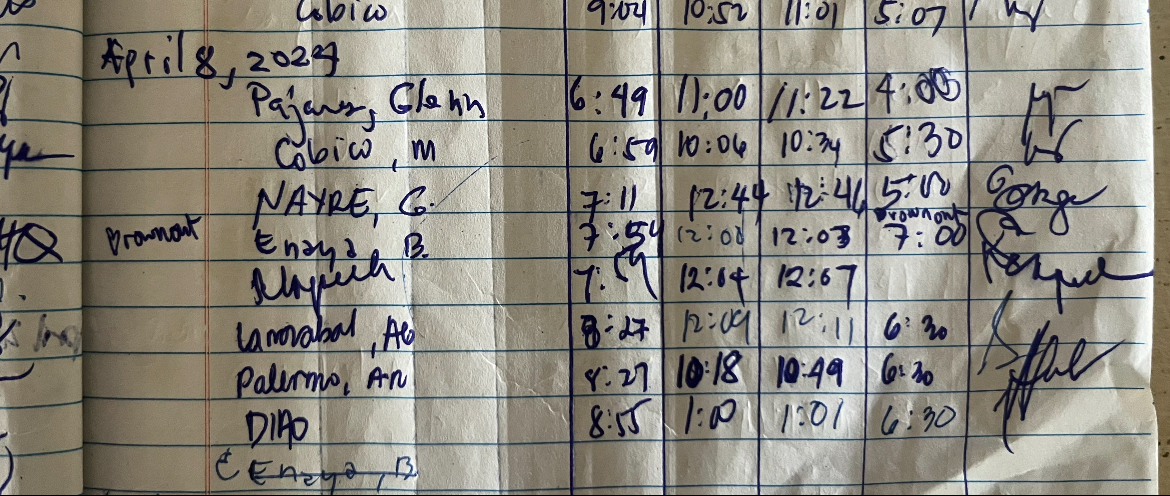 Cobico 9:04 10:52 11:01 5:07
April 8, 2024
Pajares, Glenn 6:49 11:00 11:22 4:00
Cobico, M 6:59 10:06 10:34 5:30
NAYRE, G. 7:11 12:44 12:46 5:00
Brownout Enaya B. 7:54 12:00 12:03 Brownout 7:00
7:59 12:04 12:07
Lanorabal, AG 8:27 12:09 12:11 6:30
Palermo, An 8:27 10:18 10:49 6:30
DIAO 8:55 1:00 1:01 6:30
Enaya, B